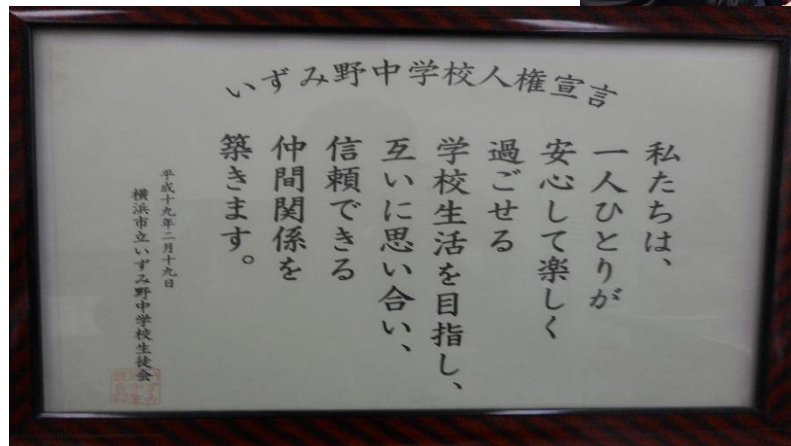 いずみ野中学校人権宣言
私たちは、
一人ひとりが
安心して楽しく
過ごせる
学校生活を目指し、
互いに思い合い、
信頼できる
仲間関係を
築きます。
平成十九年二月十九日
横浜市立いずみ野中学校生徒会